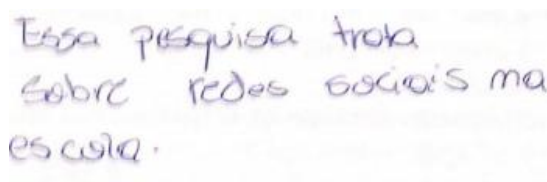 Essa pesquisa trata
sobre redes sociais na
escola.